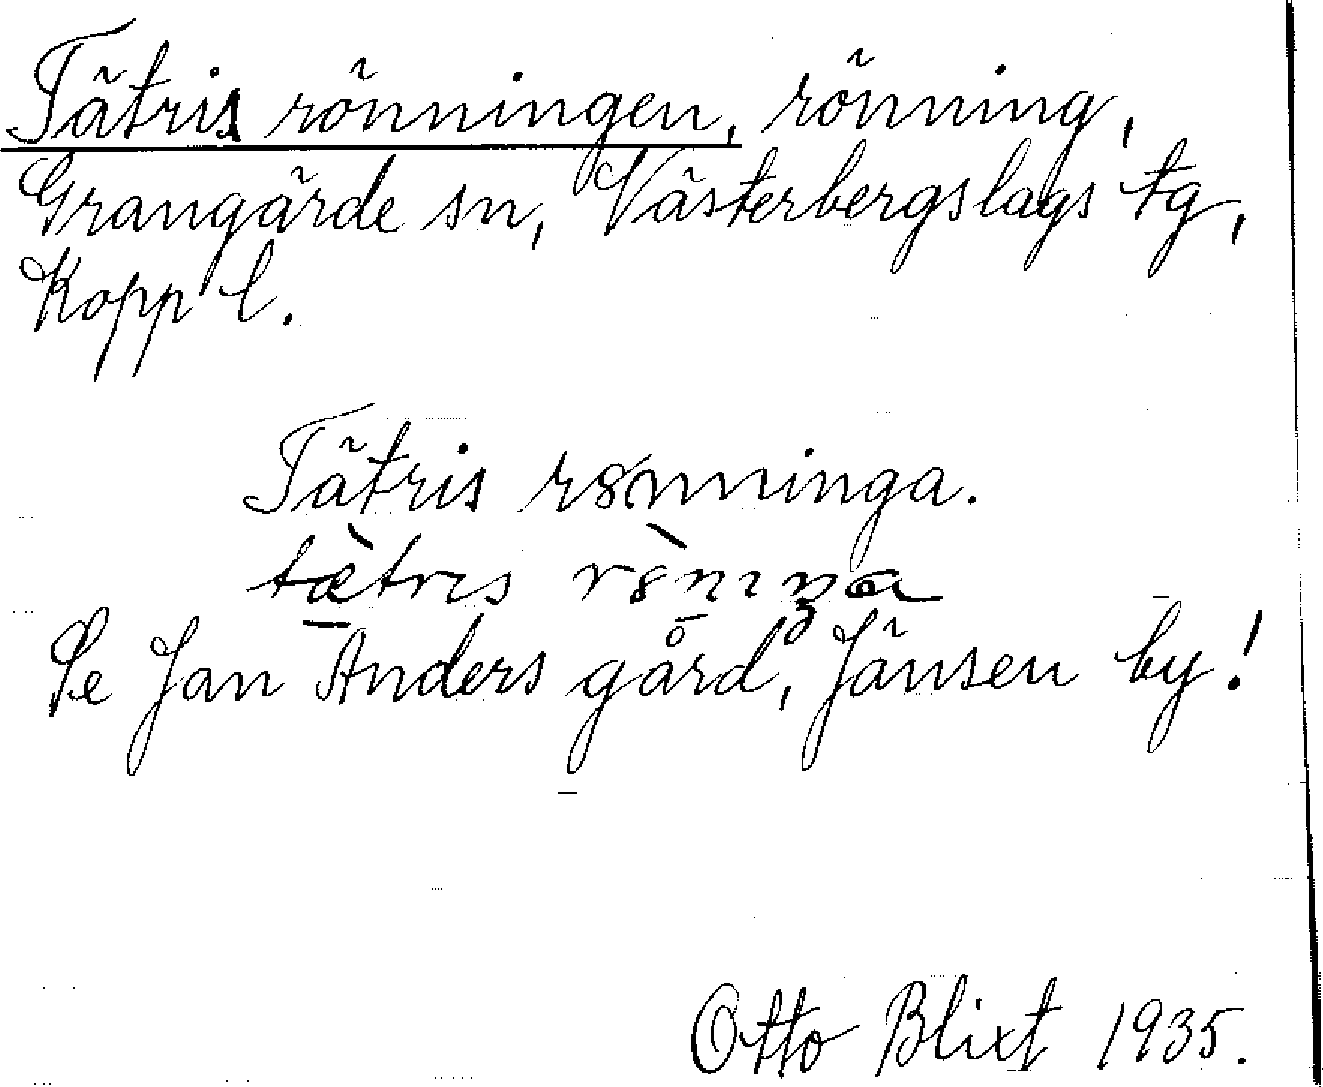 Tätris rönningen, rönning,
Grangärde sn, Västerbergslags tg,
Kopp l.
Tätris rönninga.
tæ̀tris r8̀nıŋa
Se Jan Anders gård, Jänsen by!
Otto Blixt 1935.